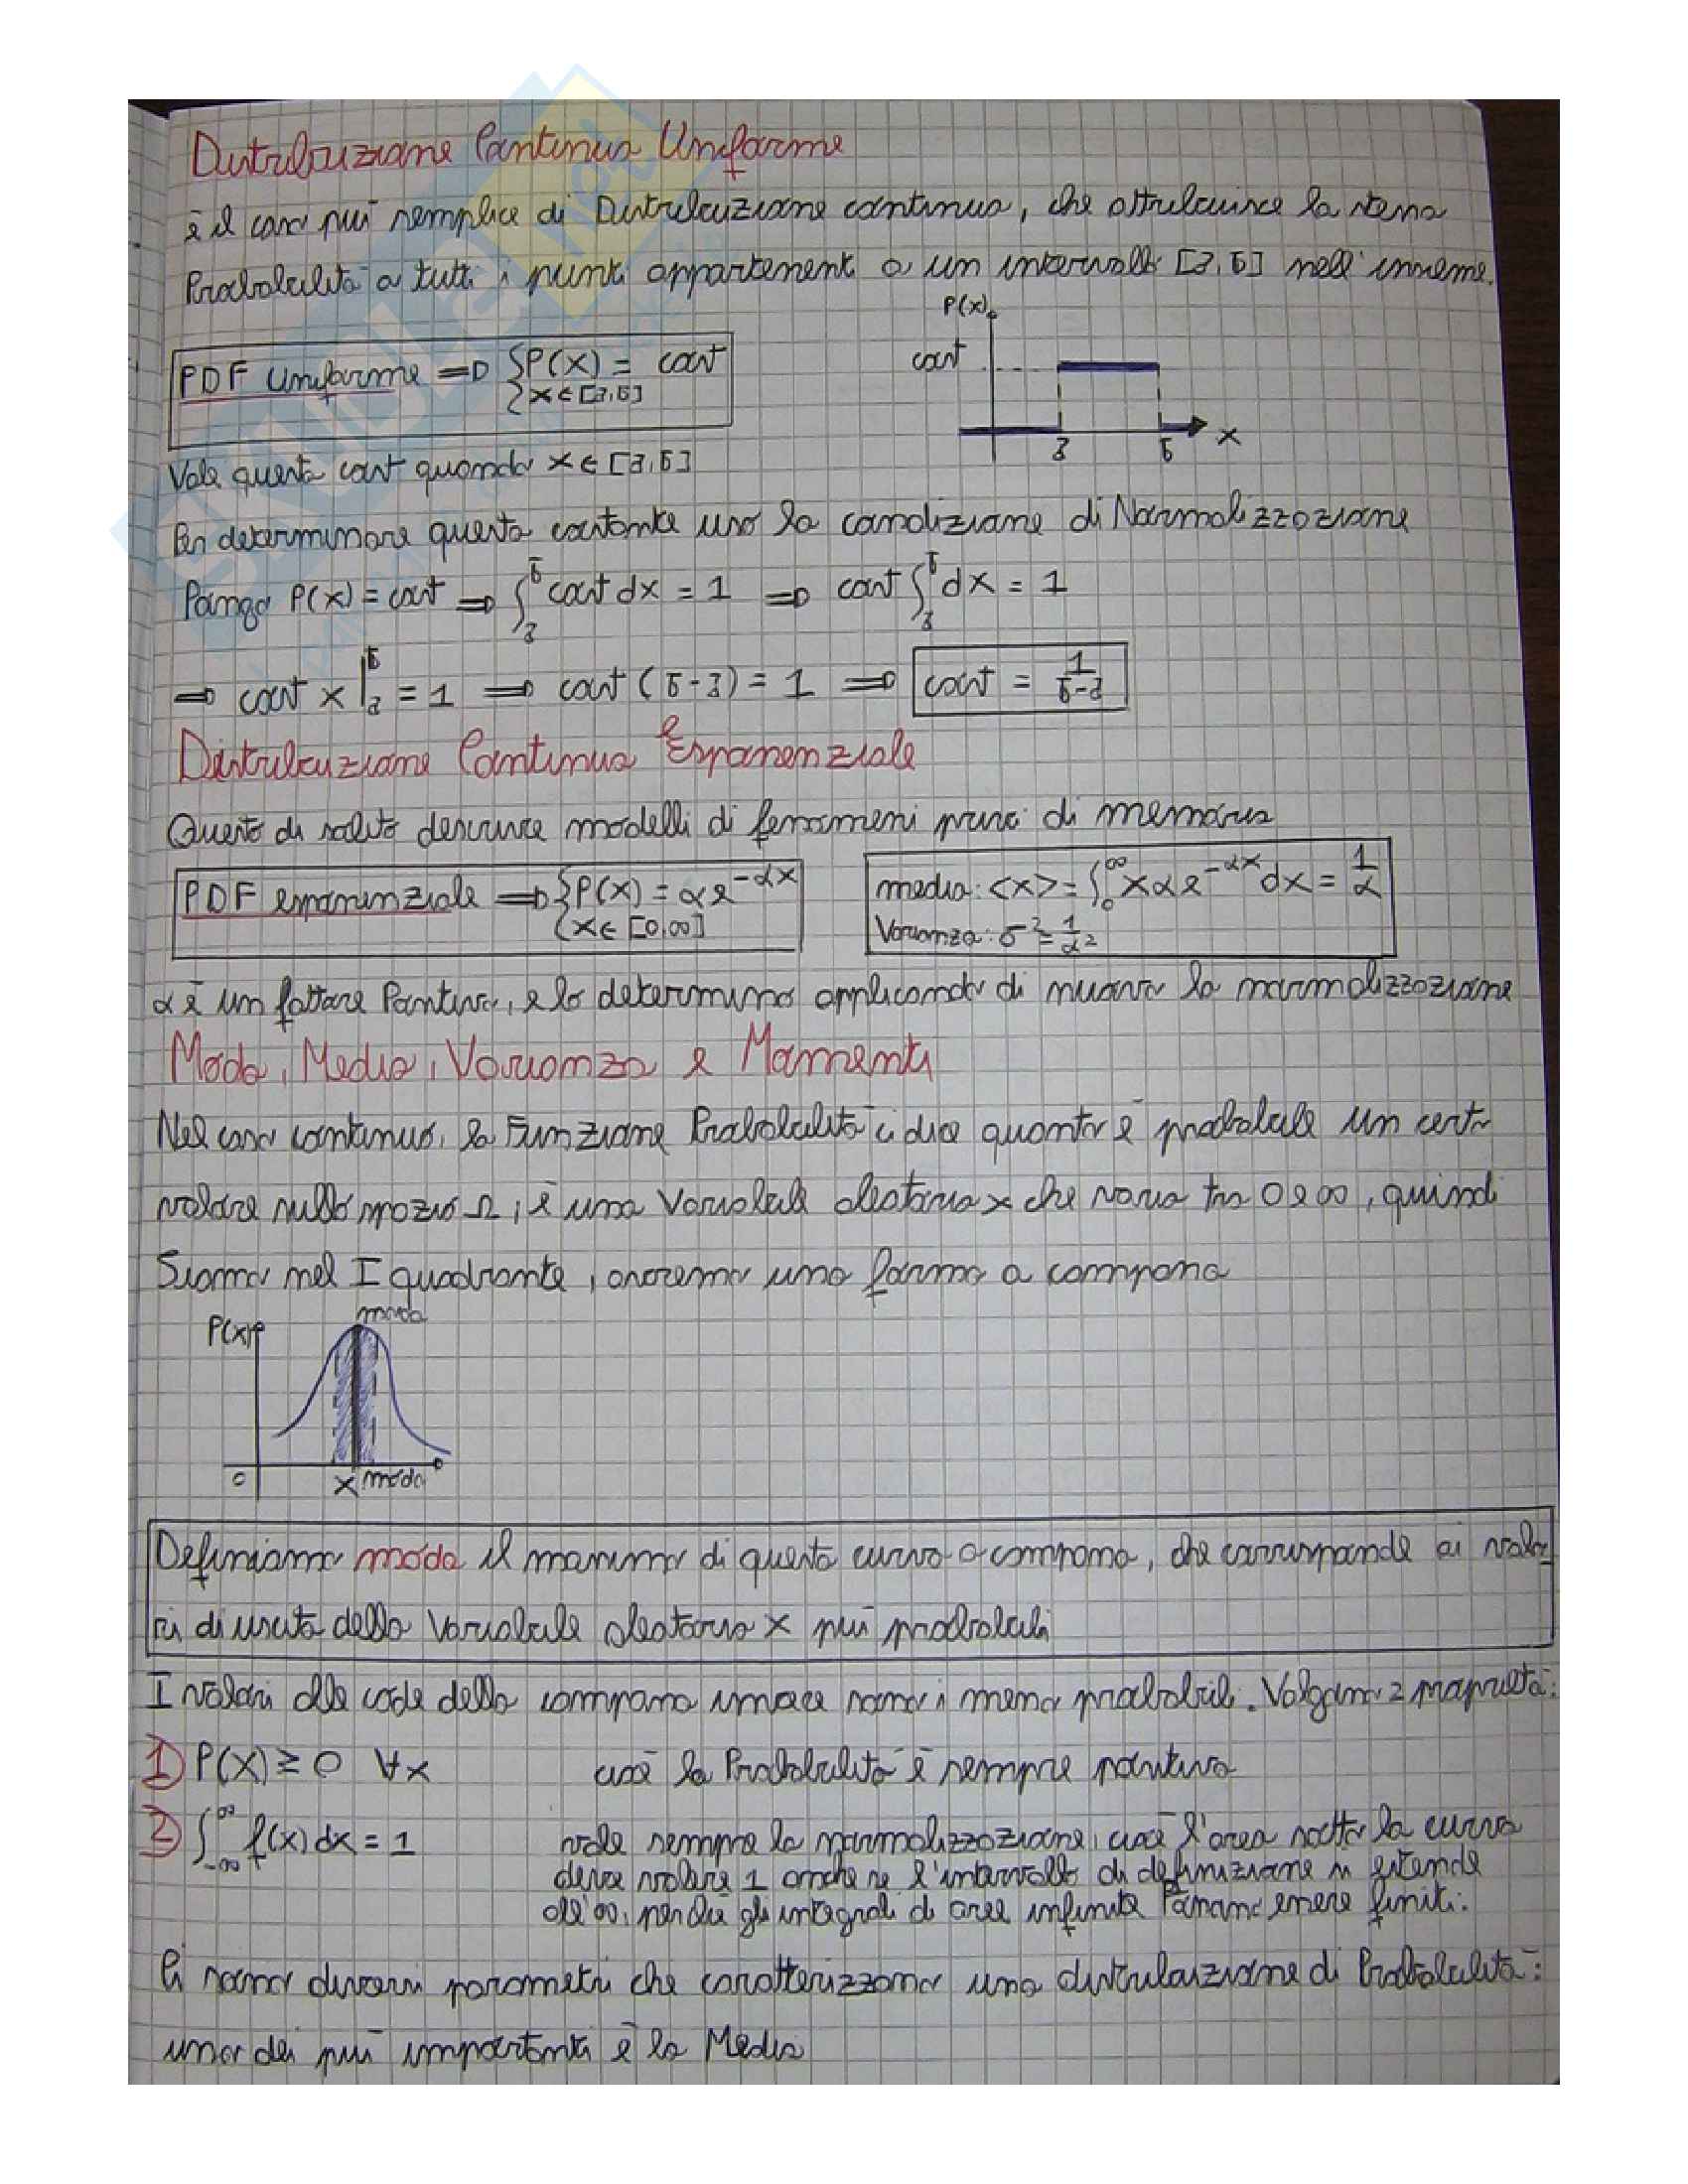 Distribuzione Continua Uniforme
è il caso più semplice di Distribuzione continua, che attribuisce la stessa
Probabilità a tutti i punti appartenenti a un intervallo [a,b] nell'insieme.
P(x)
PDF Uniforme ⇒ {P(x) = cost
{x ∈ [a,b]
cost
a b x
Vale questa cost quando x ∈ [a,b]
Per determinare questa costante uso la condizione di Normalizzazione
Pongo P(x) = cost ⇒ ∫_a^b cost dx = 1 ⇒ cost ∫_a^b dx = 1
⇒ cost x |_a^b = 1 ⇒ cost (b-a) = 1 ⇒ cost = 1/(b-a)
Distribuzione Continua Esponenziale
Questa di solito descrive modelli di fenomeni privi di memoria
PDF esponenziale ⇒ {P(x) = αe^(-αx)
{x ∈ [0,∞]
media: <x> = ∫_0^∞ xαe^(-αx) dx = 1/α
Varianza: σ² = 1/α²
α è un fattore Positivo, e lo determino applicando di nuovo la normalizzazione
Moda, Media, Varianza e Momenti
Nel caso continuo, la Funzione Probabilità ci dice quanto è probabile un certo
valore nello spazio Ω, è una Variabile aleatoria x che varia tra 0 e ∞, quindi
Siamo nel I quadrante, avremo una forma a campana
moda
P(x)
0 x moda
Definiamo moda il massimo di questa curva a campana, che corrisponde ai valo-
ri di uscita della Variabile aleatoria x più probabili
I valori alle code della campana invece sono i meno probabili. Valgono 2 proprietà:
1) P(x) ≥ 0 ∀x cioè la Probabilità è sempre positiva
2) ∫_-∞^∞ f(x) dx = 1 vale sempre la normalizzazione, cioè l'area sotto la curva
deve valere 1 anche se l'intervallo di definizione si estende
all'∞, perché gli integrali di aree infinite Possono essere finiti.
Ci sono diversi parametri che caratterizzano una distribuzione di Probabilità:
uno dei più importanti è la Media